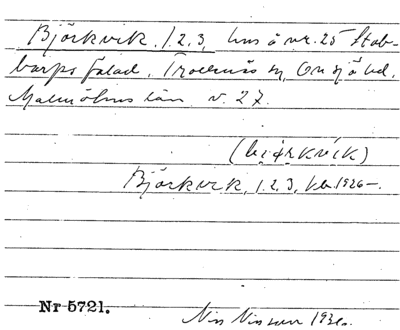 Björkvik, 1.2.3, hus å nr. 25 Stab-
barps fälad, Trollenäs sn, Onsjö hd,
Malmöhus län v. 27.
(bjǫrkvik)
Björkvik, 1.2.3, kb. 1926–.
Nr 5721.
Nils Nilsson 1930.